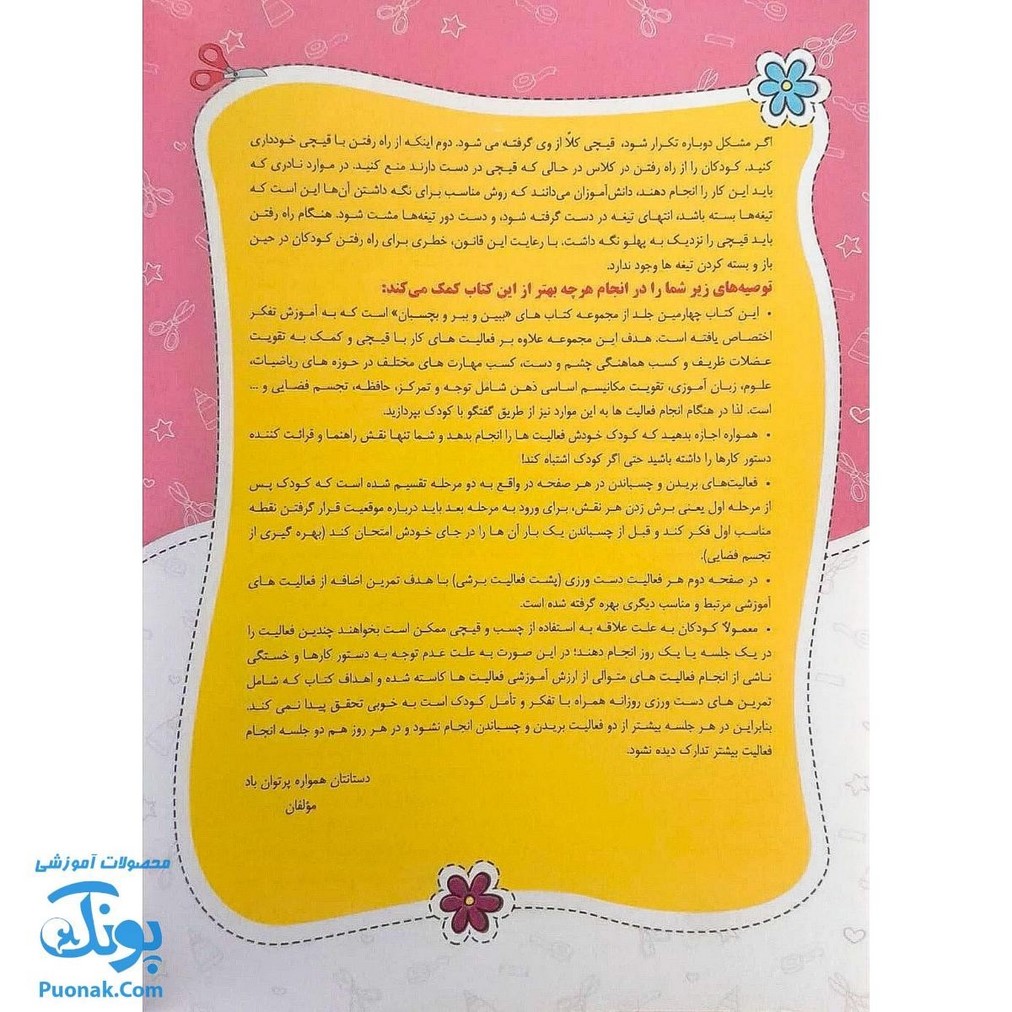 اگر مشکل دوباره تکرار شود، قیچی کلاً از وی گرفته می شود. دوم اینکه از راه رفتن با قیچی خودداری
کنید. کودکان را از راه رفتن در کلاس در حالی که قیچی در دست دارند منع کنید. در موارد نادری که
باید این کار را انجام دهند، دانش‌آموزان می‌دانند که روش مناسب برای نگه داشتن آن‌ها این است که
تیغه‌ها بسته باشد، انتهای تیغه در دست گرفته شود، و دست دور تیغه‌ها مشت شود. هنگام راه رفتن
باید قیچی را نزدیک به پهلو نگه داشت. با رعایت این قانون، خطری برای راه رفتن کودکان در حین
باز و بسته کردن تیغه ها وجود ندارد.
توصیه‌های زیر شما را در انجام هرچه بهتر از این کتاب کمک می‌کند:
• این کتاب چهارمین جلد از مجموعه کتاب های «ببین و ببر و بچسبان» است که به آموزش تفکر
اختصاص یافته است. هدف این مجموعه علاوه بر فعالیت های کار با قیچی و کمک به تقویت
عضلات ظریف و کسب هماهنگی چشم و دست، کسب مهارت های مختلف در حوزه های ریاضیات،
علوم، زبان آموزی، تقویت مکانیسم اساسی ذهن شامل توجه و تمرکز، حافظه، تجسم فضایی و ...
است. لذا در هنگام انجام فعالیت ها به این موارد نیز از طریق گفتگو با کودک بپردازید.
• همواره اجازه بدهید که کودک خودش فعالیت ها را انجام بدهد و شما تنها نقش راهنما و قرائت کننده
دستور کارها را داشته باشید حتی اگر کودک اشتباه کند!
• فعالیت‌های بریدن و چسباندن در هر صفحه در واقع به دو مرحله تقسیم شده است که کودک پس
از مرحله اول یعنی برش زدن هر نقش، برای ورود به مرحله بعد باید درباره موقعیت قرار گرفتن نقطه
مناسب اول فکر کند و قبل از چسباندن یک بار آن ها را در جای خودش امتحان کند (بهره گیری از
تجسم فضایی).
• در صفحه دوم هر فعالیت دست ورزی (پشت فعالیت برشی) با هدف تمرین اضافه از فعالیت های
آموزشی مرتبط و مناسب دیگری بهره گرفته شده است.
• معمولاً کودکان به علت علاقه به استفاده از چسب و قیچی ممکن است بخواهند چندین فعالیت را
در یک جلسه یا یک روز انجام دهند؛ در این صورت به علت عدم توجه به دستور کارها و خستگی
ناشی از انجام فعالیت های متوالی از ارزش آموزشی فعالیت ها کاسته شده و اهداف کتاب که شامل
تمرین های دست ورزی روزانه همراه با تفکر و تأمل کودک است به خوبی تحقق پیدا نمی کند.
بنابراین در هر جلسه بیشتر از دو فعالیت بریدن و چسباندن انجام نشود و در هر روز هم دو جلسه انجام
فعالیت بیشتر تدارک دیده نشود.
دستانتان همواره پرتوان باد
مؤلفان
محصولات آموزشی
پونک
Puonak.Com